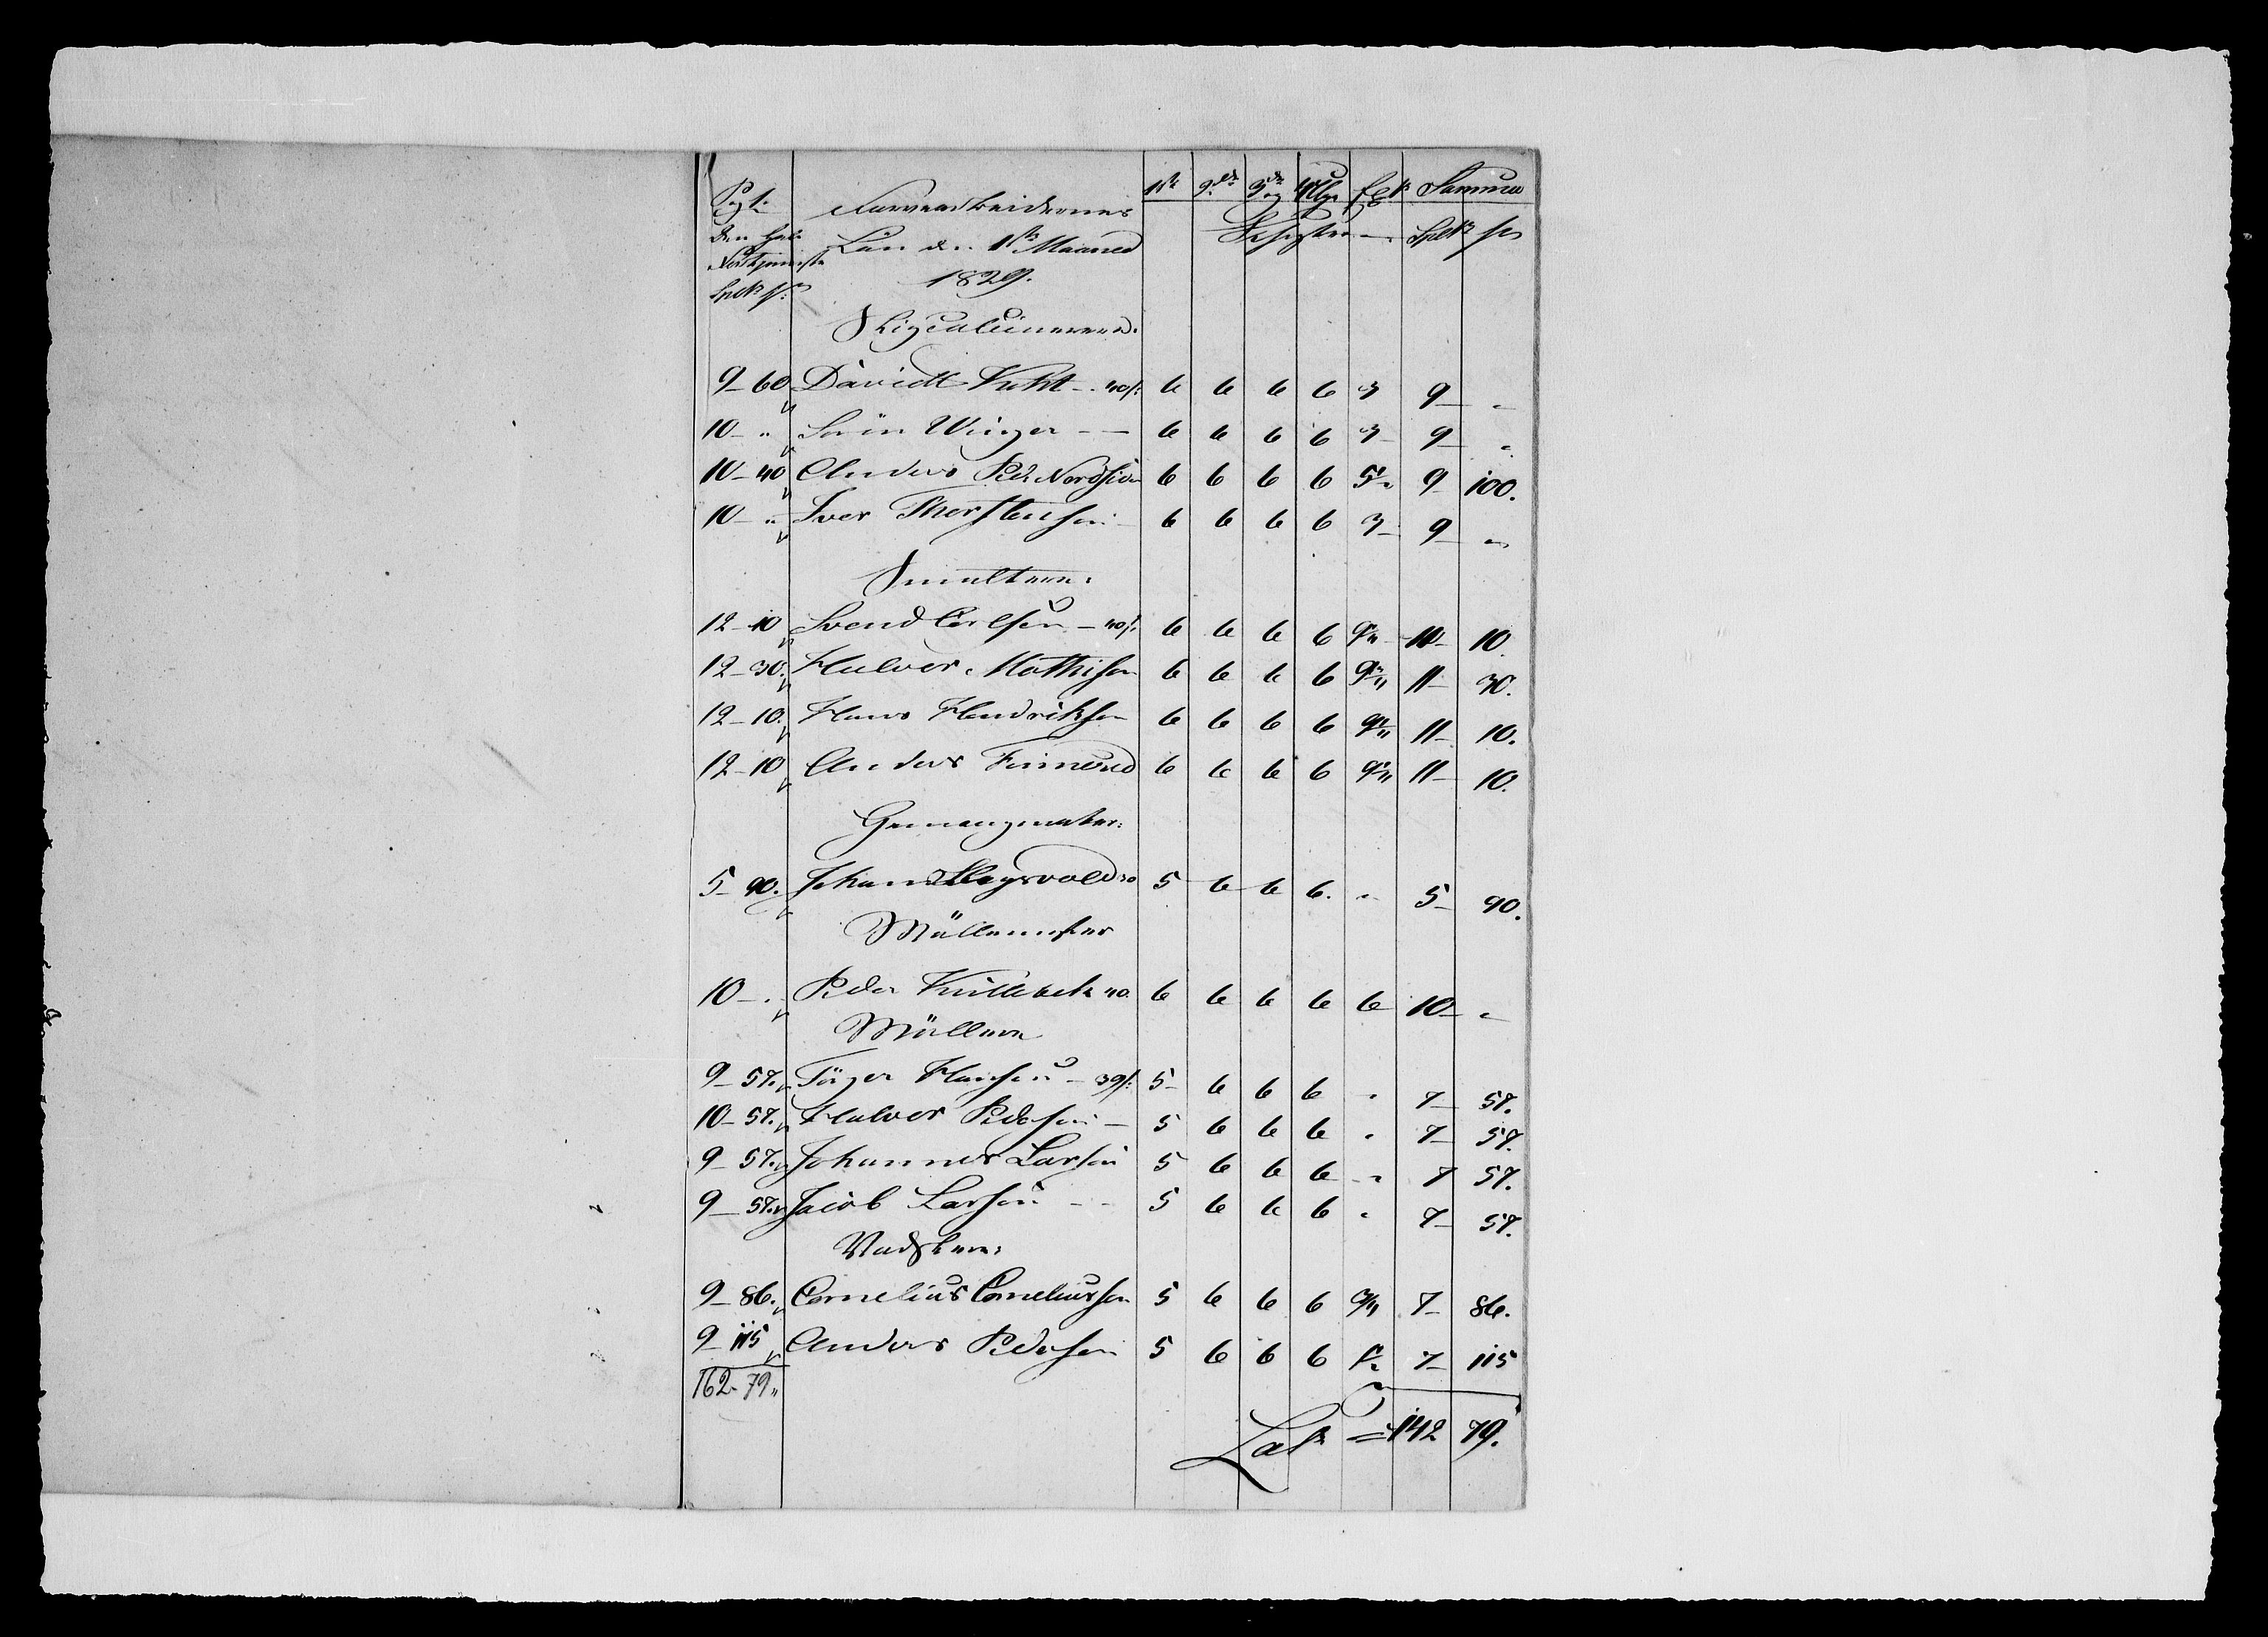 1ste 2den 3die og 4de Uge Extra Summa
Den hele Fortjeneste
Spdlr s:
Løn den 1ste Maaned
1829.
Spdlr s:
9-60 Davidt Vukt - 40 s: 6 6 6 6 3 9 "
10- " Sören Winger - - 6 6 6 6 3 9 "
10-40 Anders Peder Nordlien 6 6 6 6 5 9 100.
10- " Iver Thorstensen 6 6 6 6 3 9 "
Smeltere:
12-10 Svend Carlsen - 40 s: 6 6 6 6 9 11 10
12-30. Halvor Mathisen 6 6 6 6 9 11 30.
12-10. Hans Hendriksen 6 6 6 6 9 11 10.
12-10 Anders Finnerud 6 6 6 6 9 11 10.
Gemengmaker:
5-90. Johan Skogsvold 30 5 6 6 6. " 5 90.
10- " Peder Kullebek 40. 6 6 6 6 6 10 "
Müllere
9-57. Törger Hansen - 39 s: 5 6 6 6 " 7 57.
10-57. Halvor Pedersen - 5 6 6 6 " 7 57.
9-57. Johannes Larsen 5 6 6 6 " 7 57.
9-57. Jacob Larsen - - 5 6 6 6 " 7 57.
Vadskere:
9-86. Cornelius Corneliussen 5 6 6 6 7 86.
9-115 Anders Pedersen 5 6 6 6 7 115
162-79 "
Lats = 142 79.